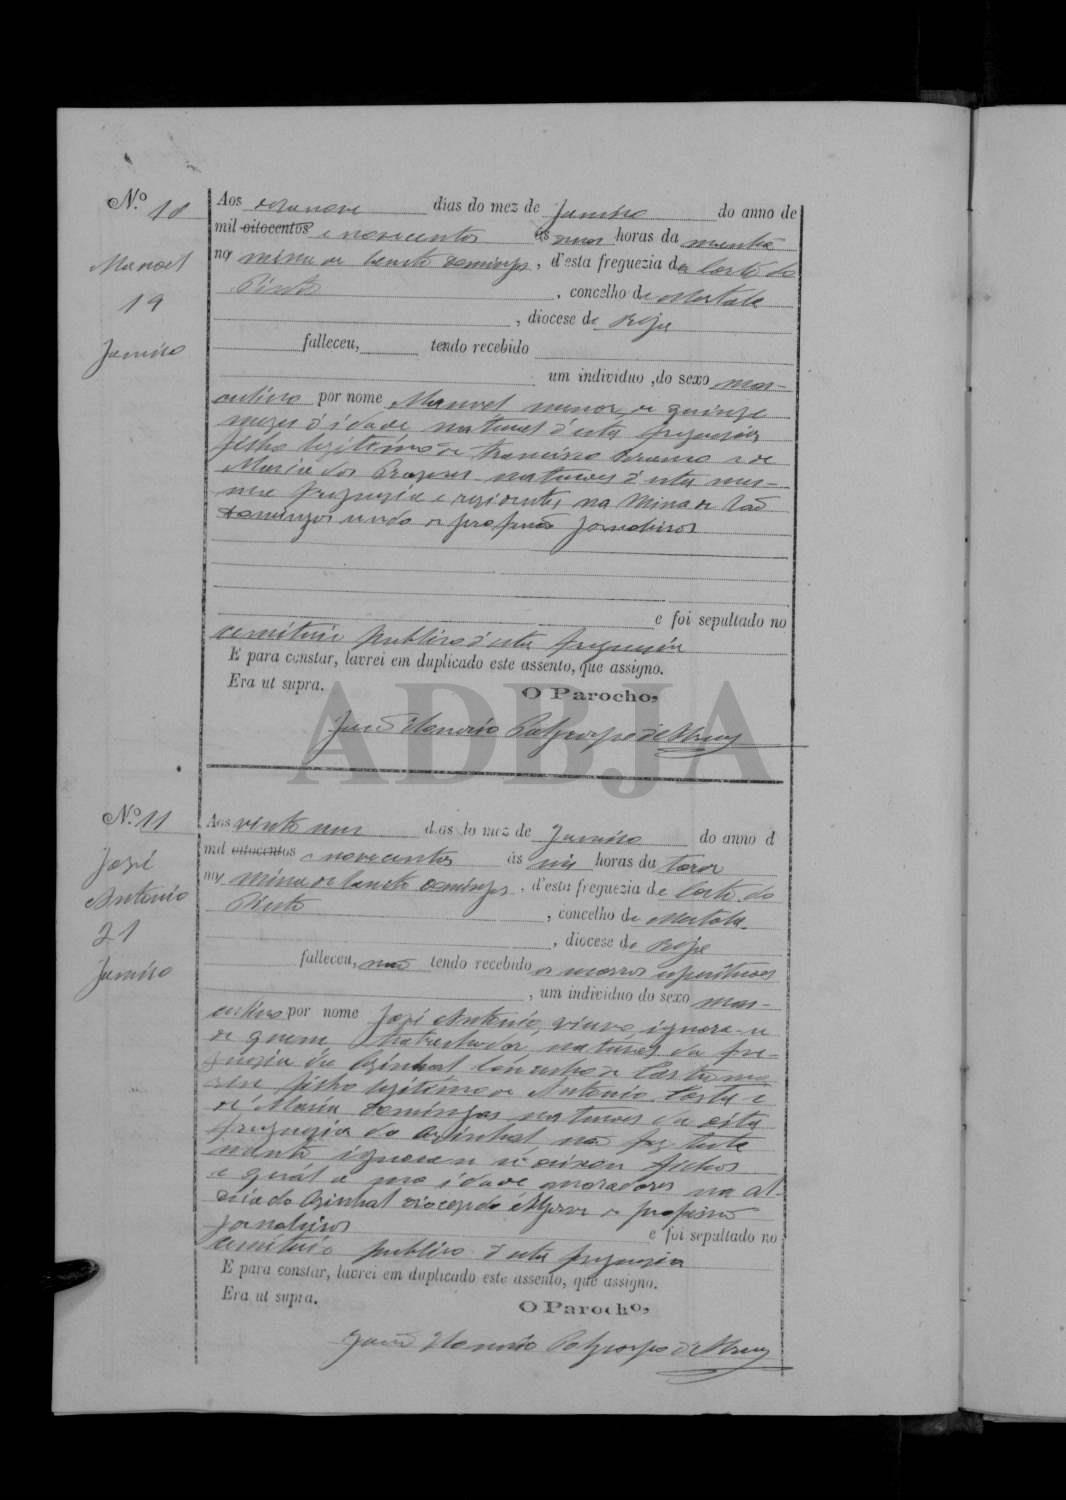 N.º 10
Manoel
19
Janeiro
Aos dezanove dias do mez de Janeiro do anno de
mil oitocentos e novecentos ás horas da manhã
na mina de Domingos, d'esta freguezia de Corte do
Pinto, concelho de Mertola
, diocese de Beja
falleceu, tendo recebido
um individuo do sexo mas-
culino por nome Manoel menor, de quinze
mezes d'idade natural d'esta freguezia
filho legitimo de Francisco e de
Maria dos Prazeres naturaes d'esta mes-
ma freguezia e rezidentes na Mina de São
Domingos de profissão jornaleiros
e foi sepultado no
cemiterio publico d'esta freguezia
E para constar, lavrei em duplicado este assento, que assigno.
Era ut supra.
O Parocho,
ADBJA
N.º 11
José
Antonio
21
Janeiro
Aos vinte um dias do mez de Janeiro do anno d
mil oitocentos e novecentos ás horas da tarde
na mina de Domingos, d'esta freguezia de Corte do
Pinto, concelho de Mertola
, diocese de Beja
falleceu, não tendo recebido os
, um individuo do sexo mas-
culino por nome José Antonio, viuvo, ignora-se
de quem, natural da fre-
guezia do Azinhal Concelho de Castro ma-
rim filho legitimo de Antonio Costa e
de Maria Domingas naturaes da dita
freguezia do Azinhal, não fez testa
mento ignora-se se deixou filhos
e qual a sua idade moradores na al-
deia do Azinhal diocese do Algarve de profissão
jornaleiros e foi sepultado no
cemiterio publico d'esta freguezia
E para constar, lavrei em duplicado este assento, que assigno.
Era ut supra.
O Parocho,